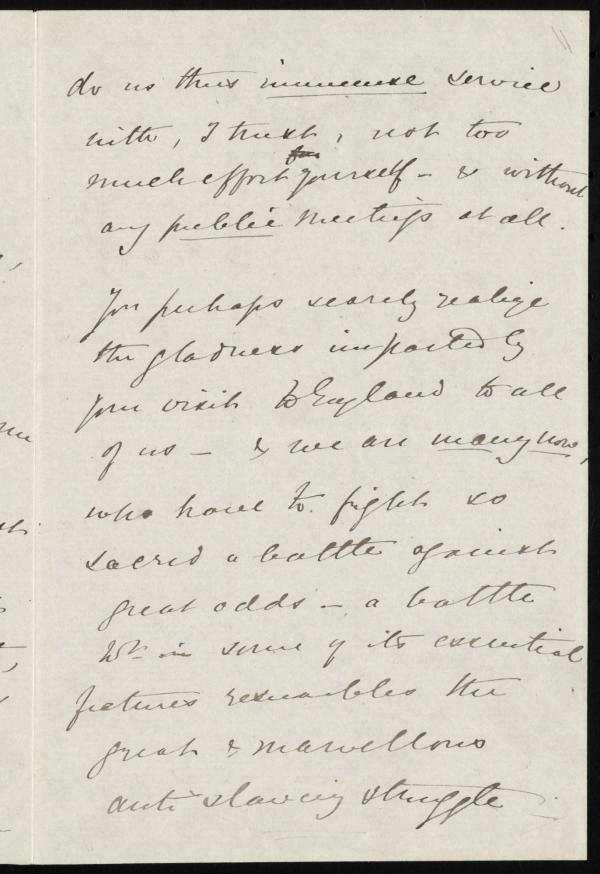 do us this immense service
with, I trust, not too
much effort for yourself – & without
any public meetings at all.
You perhaps scarcely realize
the gladness imparted by
your visit to England to all
of us – & we are many now,
who have to fight so
sacred a battle against
great odds – a battle
wh. in some of its essential
features resembles the
great & marvellous
anti slavery struggle